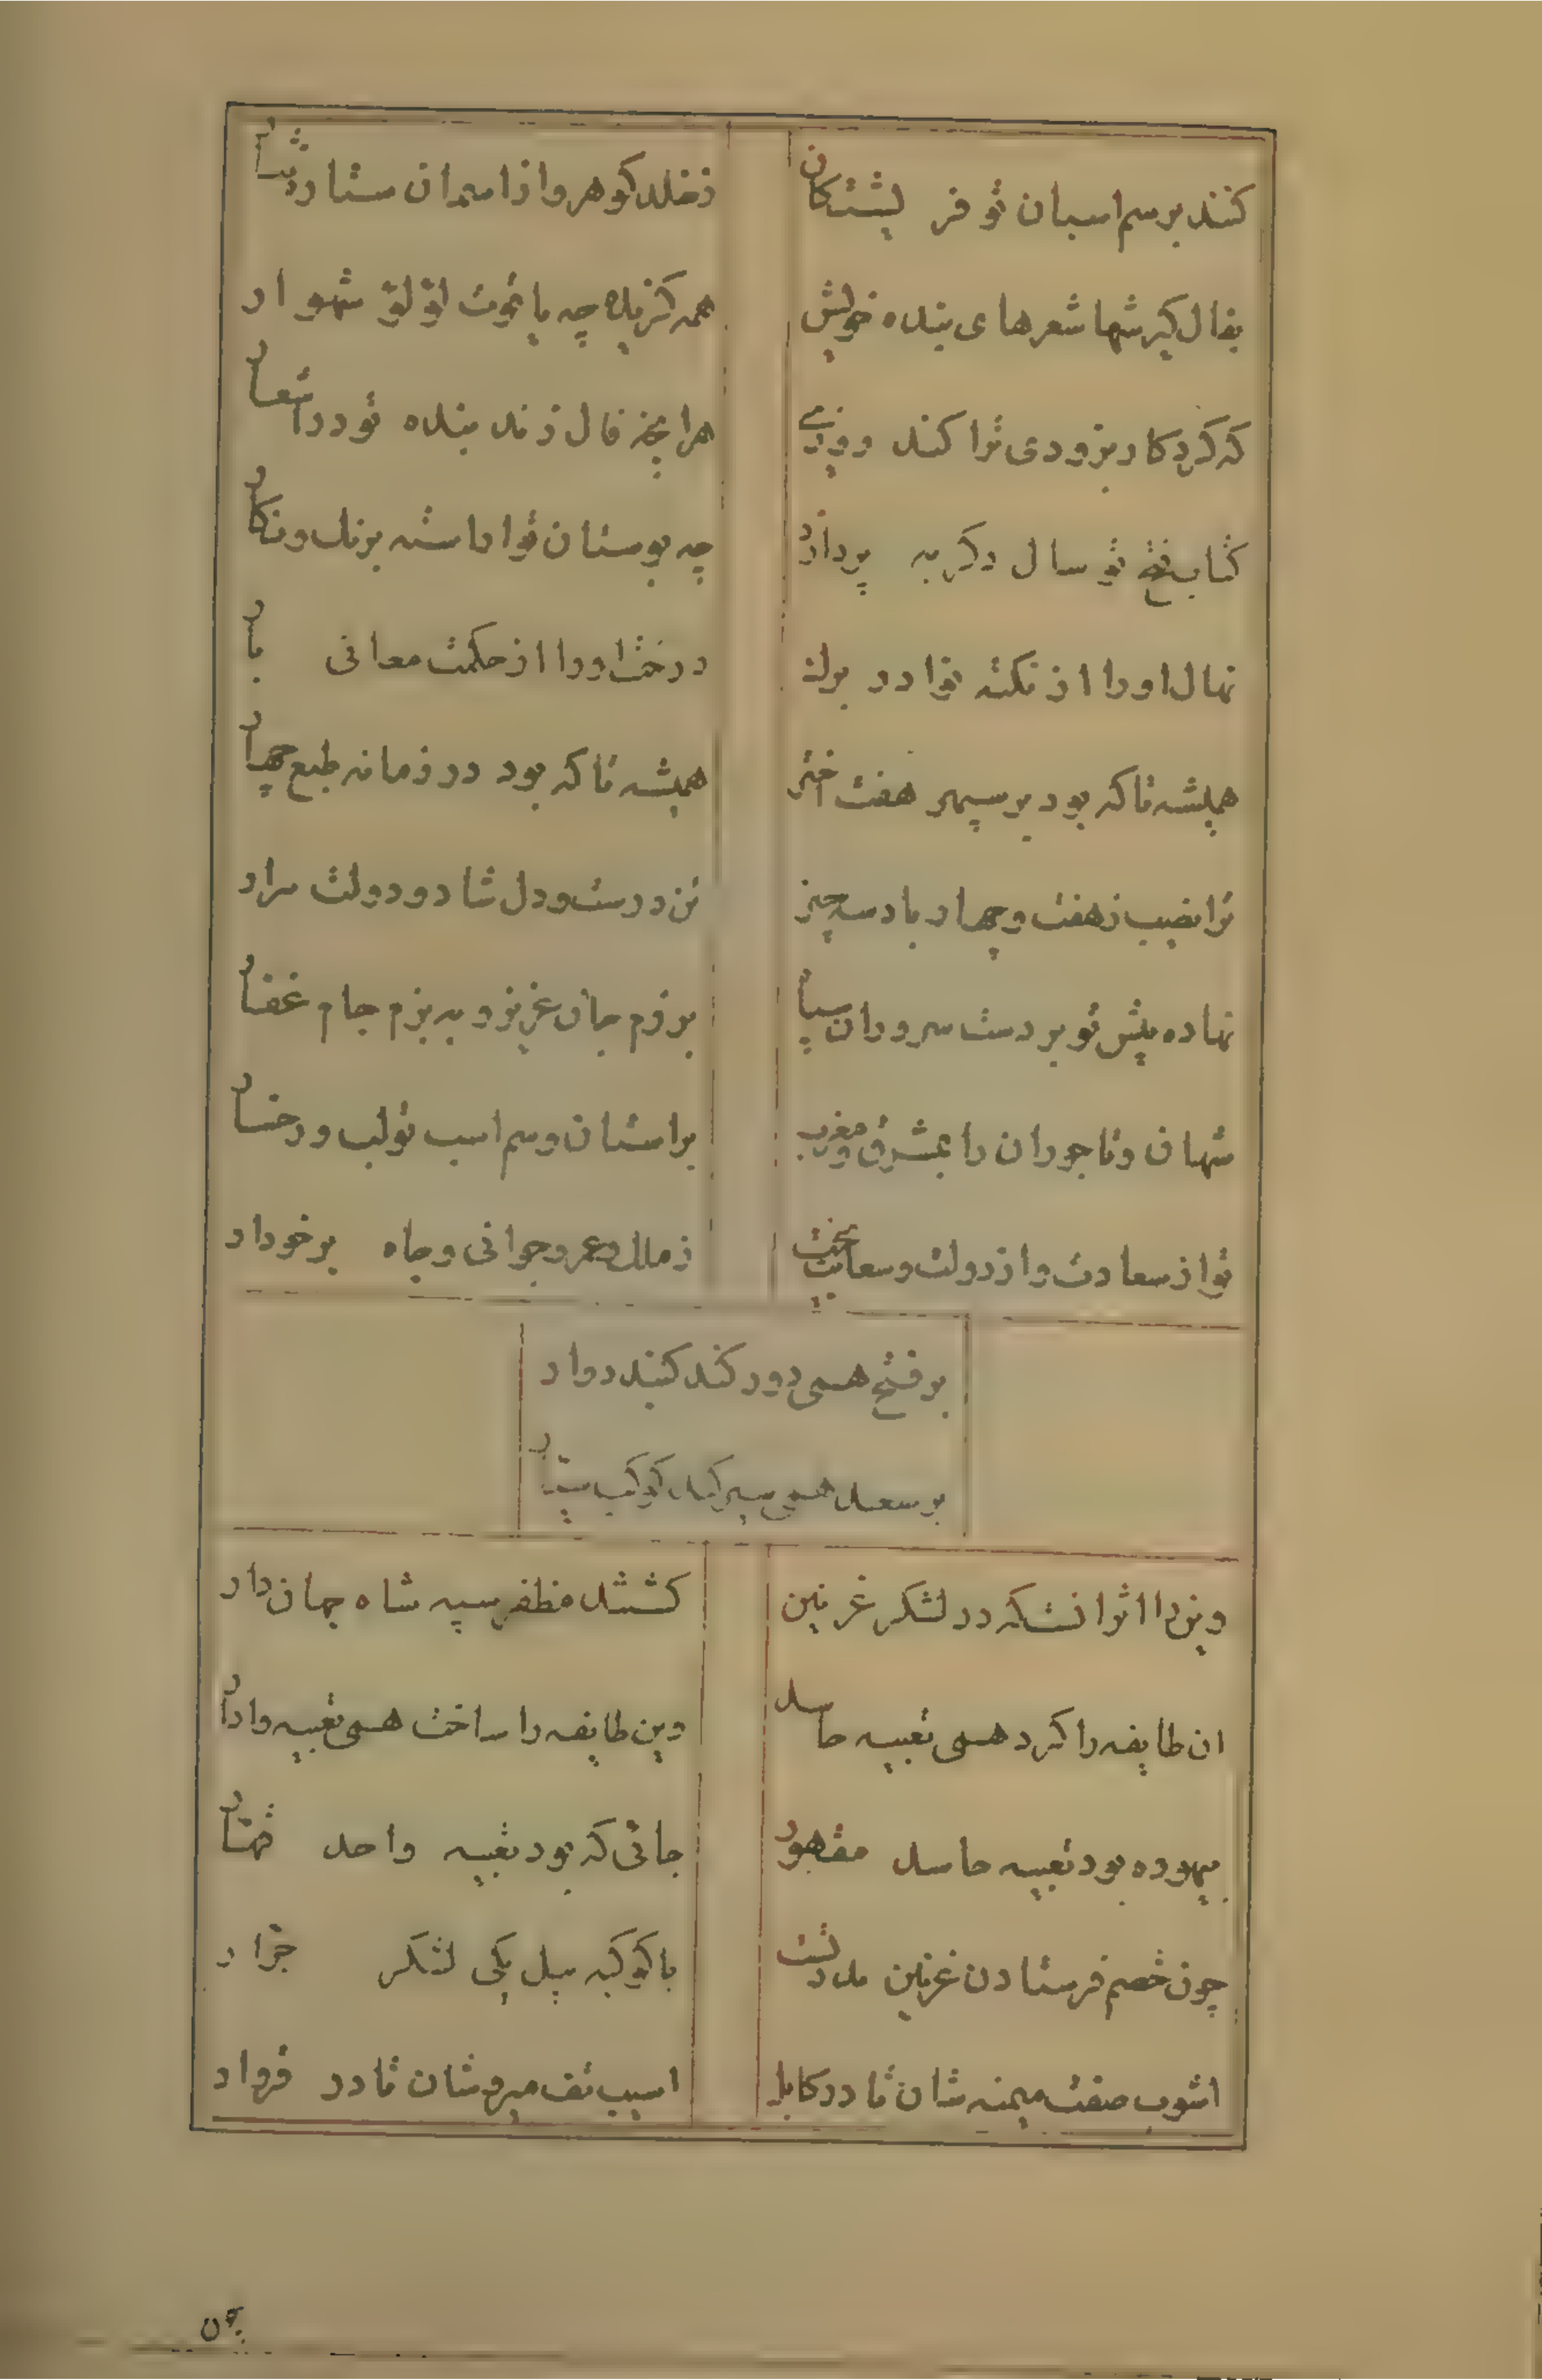 کنند بر سم اسبان تو فریشتکان
ز خلد کوهر و از اسمان ستاره نثار
بفال کیر شها شعرهای بنده خویش
همه کزیده چه یاقوت لؤلؤ شهوار
که کردکار بزودی ترا کند روزی
هرانچه فال زند بنده تو در اشعار
کتاب فتح تو سال دکر به پردازد
چه بوستان تو اراسته برنک و نکار
نهال او را از نکته نوادر برک
درخت او را از حکمت معانی بار
همیشه تا که بود بر سپهر هفت اختر
همیشه تا که بود در زمانه طبع چهار
ترا نصیب ز هفت و چهار باد سه چیز
تن درست و دل شاد و دولت مرار
نهاده پیش تو بر دست سروران سپاه
برزم جان عزیز و به بزم جام عقار
شهان و تاجوران را بمشرق و مغرب
بر استان و سم اسب تو لب و رخسار
تو از سعادت و از دولت و سعایت بخت
ز ملک و عمر و جوانی و جاه برخودار
بر فتح همی دور کند کنبد دوار
بر سعد همی سیر کند کوکب سیار
وین را اثر انست که در لشکر غزنین
کشتند مظفر سپه شاه جهان دار
ان طایفه را کرد همی تعبیه حاسد
وین طایفه را ساخت همی تعبیه دادار
بیهوده بود تعبیه حاسد مقهور
جائی که بود تعبیه واحد قهار
چون خصم فرستاد ن غزنین مدد
با کوکبه پیل یکی لشکر جرار
اشوب صفت میمنه شان تا در کابل
اسیب تف میسره شان تا در